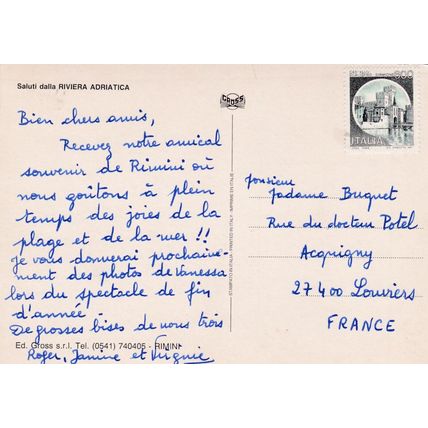 Saluti dalla RIVIERA ADRIATICA
GROSS
600
ITALIA
Bien chers amis,
Recevez notre amical
souvenir de Rimini où
nous goûtons à plein
temps des joies de la
plage et de la mer !!
Je vous donnerai prochaine-
ment des photos de Vanessa
lors du spectacle de fin
d'année -
De grosses bises de nous trois
Roger, Janine et Virginie
Ed. Gross s.r.l. Tel. (0541) 740405 - RIMINI
STAMPATO IN ITALIA PRINTED IN ITALY - IMPRIMÉ EN ITALIE
Monsieur
Madame Buquet
Rue du docteur Potel
Acquigny
27400 Louviers
FRANCE